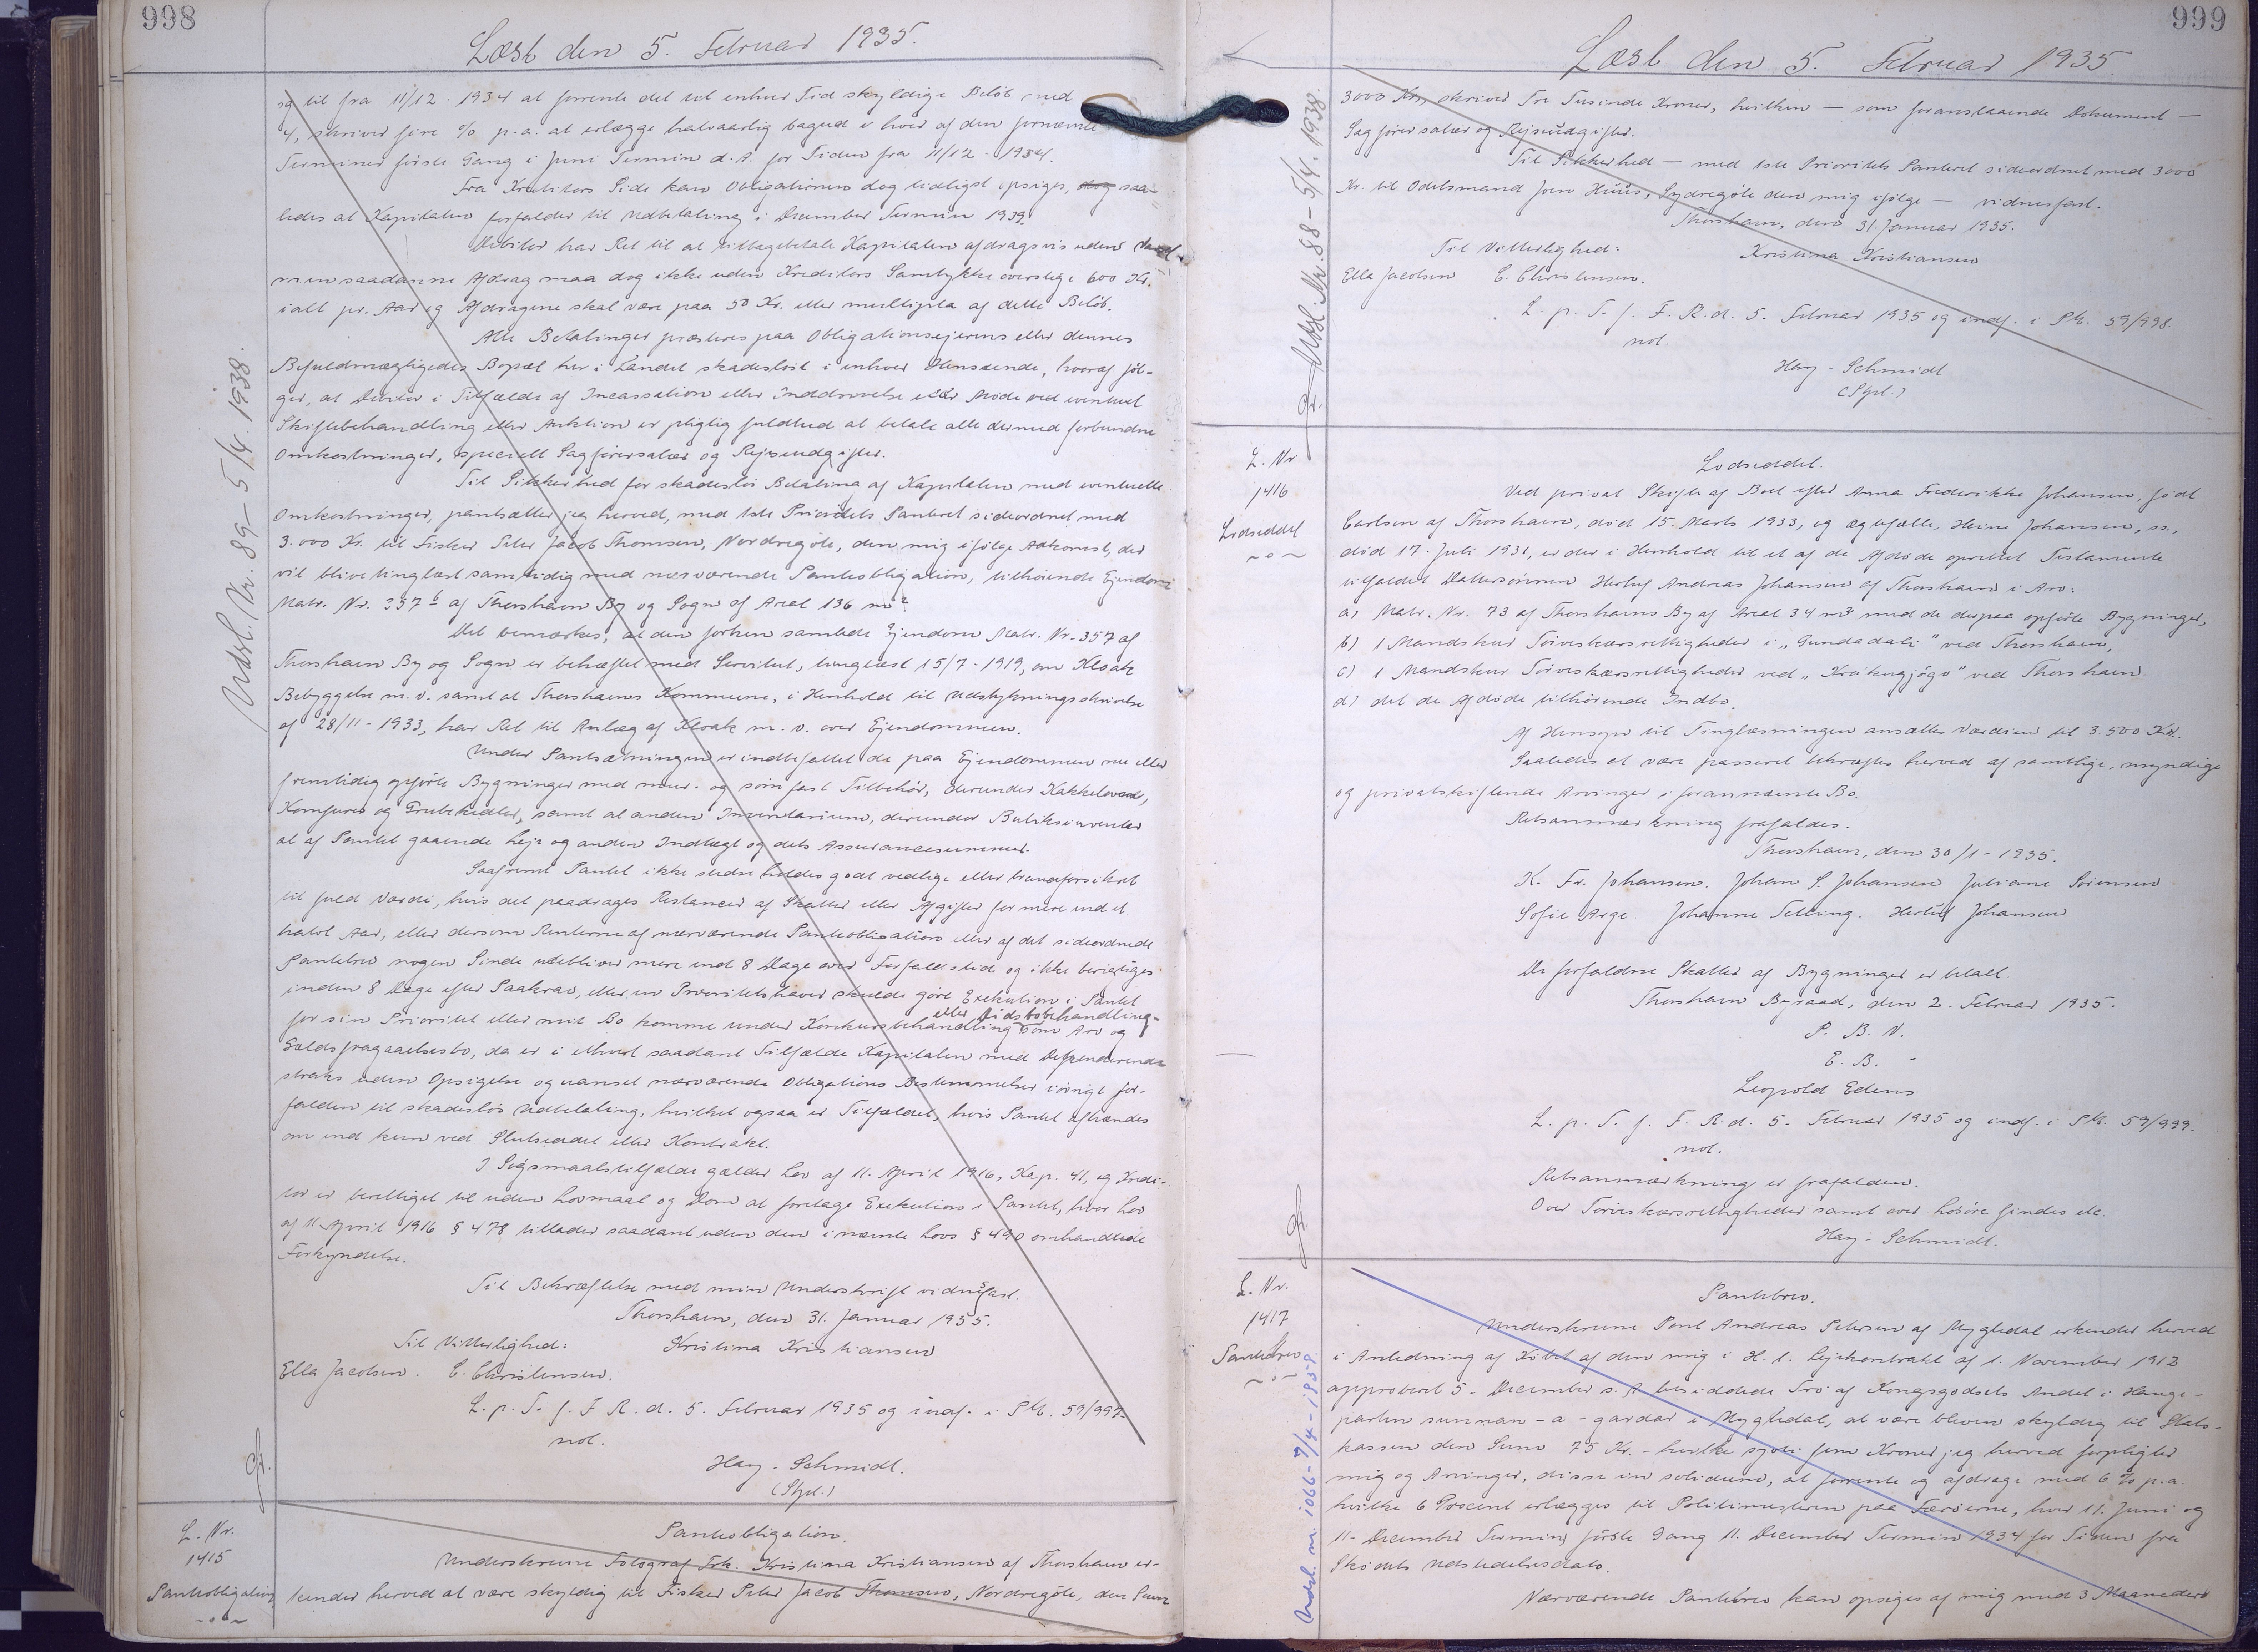 998
Læst den 5. Februar 1935.
og til fra 11/12. 1934 at forrente det til enhver Tid skyldige Beløb med
4, skriver fire % p.a. at erlægge halvaarlig bagud i hver af den fornævnte
Terminer første Gang i Juni Termin d. A. for Tiden fra 11/12. 1934.
Fra Kreditors Side kan Obligationen dog tidligst opsiges, dog saa-
ledes at Kapitalen forfalder til Udbetaling i December Termin 1939.
Debitor har Ret til at tilbagebetale Kapitalen afdragsvis uden Varsel.
men saadanne Afdrag maa dog ikke uden Kreditors Samtykke overstige 600 Kr.
ialt pr. Aar og Afdragene skal være paa 50 Kr. eller multipla af dette Beløb.
Alle Betalinger præsteres paa Obligationsejerens eller dennes
Befuldmægtigedes Bopæl her i Landet skadesløst i enhver Henseende, hvoraf føl-
ger, at Debitor i Tilfælde af Incassation eller Inddrivelse eller Møde ved eventuel
Skiftebehandling eller Auktion er pligtig fuldtud at betale alle dermed forbundne
Omkostninger, specielt Sagførersalær og Rejseudgifter.
Til Sikkerhed for skadesløs Betaling af Kapitalen med eventuelle
Omkostninger, pantsætter jeg herved, med 1ste Prioritets Panteret sideordnet med
3.000 Kr. til Fisker Peter Jacob Thomsen, Nordregøte, den mig ifølge Adkomst, der
vil blive tinglæst samtidig med nærværende Panteobligation, tilhørende Ejendom
Matr. Nr. 357 b af Thorshavn By og Sogn af Areal 136 m².
Det bemærkes, at den forhen samlede Ejendom Matr. Nr. 357 af
Thorshavn By og Sogn er behæftet med Servitut, tinglæst 15/7-1919, om Kloak
Bebyggelse m.v. samt at Thorshavns Kommune, i Henhold til Udstykningsskrivelse
af 28/11-1933, har Ret til Anlæg af Kloak m.v. over Ejendommen.
Under Pantsætningen er indbefattet de paa Ejendommen nu eller
fremtidig opførte Bygninger med mur- og sømfast Tilbehør, derunder Kakkelovne,
Komfurer og Grubekedler, samt al anden Inventarium, derunder Butiksinventar
al af Pantet gaaende Leje og anden Indtægt og dets Assurancesummer.
Saafremt Pantet ikke stedse holdes godt vedlige eller brandforsikret
til fuld Værdi, hvis det paadrages Restancer af Skatter eller Afgifter for mere end et
halvt Aar, eller dersom Renterne af nærværende Panteobligation eller af det sideordnede
Pantebrev nogen Sinde udebliver mere end 8 Dage over Forfaldstid og ikke berigtiges
inden 8 Dage efter Paakrav, eller en Prioritetshaver skulde gøre Exekution i Pantet
for sin Prioritet eller mit Bo komme under Konkursbehandling eller Skiftebehandling som Arv og
Gældsfragaaelsesbo, da er i ethvert saadant Tilfælde Kapitalen med Dependerende
straks uden Opsigelse og uanset nærværende Obligations Bestemmelser iøvrigt for-
falden til skadesløs Udbetaling, hvilket ogsaa er Tilfældet, hvis Pantet afhændes
om end kun ved Slutseddel eller Kontrakt.
I Søgsmaalstilfælde gælder Lov af 11. April 1916, Kap. 41, og Kredi-
tor er berettiget til uden Lovmaal og Dom at foretage Exekution i Pantet, hvor Lov
af 11. April 1916 § 478 tillader saadant uden den i nævnte Lovs § 490 omhandlede
Forkyndelse.
Til Bekræftelse med min Underskrift vidnefast.
Thorshavn, den 31. Januar 1935.
Til Vitterlighed: Kristina Kristiansen
Ella Jacobsen. C. Christensen.
L. p. T. f. F. R. d. 5. Februar 1935 og indf. i Ptb. 59/997.
not.
Hay-Schmidt.
(Stpl.)
Udsl. Nr. 89 - 5/4. 1938.
L. Nr.
1415
Panteobligation
Panteobligation.
Underskrevne Fotograf Frk. Kristina Kristiansen af Thorshavn er-
kender herved at være skyldig til Fisker Peter Jacob Thomsen, Nordregøte, den Sum
999
Læst den 5. Februar 1935.
3000 Kr., skriver Tre Tusinde Kroner, hvilken — som foranstaaende Dokument —
Sagførersalær og Rejseudgifter.
Til Sikkerhed — med 1ste Prioritets Panteret sideordnet med 3000
Kr. til Odelsmand Joen Húús, Sydregøte den mig ifølge — vidnesfast.
Thorshavn, den 31. Januar 1935.
Til Vitterlighed: Kristina Kristiansen
Ella Jacobsen C. Christensen.
L. p. T. f. F. R. d. 5. Februar 1935 og indf. i Ptb. 59/998.
not.
Hay-Schmidt
(Stpl.)
Udsl. Nr. 88 - 5/4. 1938.
L. Nr
1416
Lodseddel
Lodseddel.
Ved privat Skifte af Boet efter Anna Frederikke Johansen, født
Carlsen af Thorshavn, død 15. Marts 1933, og Ægtefælle, Heine Johansen, ss.,
død 17. Juli 1931, er der i Henhold til et af de Afdøde oprettet Testamente
tilfaldet Dattersønnen Herluf Andreas Johansen af Thorshavn i Arv:
a) Matr. Nr. 73 af Thorshavns By af Areal 34 m² med de derpaa opførte Bygninger,
b) 1 Mandskur Tørveskærsrettigheder i „Gundadali" ved Thorshavn,
c) 1 Mandskur Tørveskærsrettigheder ved „Krákugjógv" ved Thorshavn
d) det de Afdøde tilhørende Indbo.
Af Hensyn til Tinglæsningen ansættes Værdien til 3.500 Kr.
Saaledes at være passeret bekræftes herved af samtlige, myndige
og privatskiftende Arvinger i forannævnte Bo.
Retsanmærkning frafaldes.
Thorshavn, den 30/1-1935.
K. Fr. Johansen. Johan S. Johansen Juliane Sørensen
Sofie Arge. Johanne Telling. Herluf Johansen
De forfaldne Skatter af Bygninger er betalt.
Thorshavn Byraad, den 2. Februar 1935.
P. B. V.
E. B.
Leopold Edens
L. p. T. f. F. R. d. 5. Februar 1935 og indf. i Ptb. 59/999.
not.
Retsanmærkning er frafalden.
Over Tørveskærsrettigheder samt over Løsøre findes etc.
Hay-Schmidt.
L. Nr.
1417
Pantebrev
Pantebrev.
Underskrevne Poul Andreas Petersen af Mygledal erkender herved
i Anledning af Købet af den mig i H. t. Lejekontrakt af 1. November 1912
approberet 5. December s. A. besiddede Trø af Kongsgodsets Andel i Hauge-
parten sunnan-a-gardar i Mygledal, at være bleven skyldig til Stats-
kassen den Sum 75 Kr. - hvilke syvti fem Kroner jeg herved forpligter
mig og Arvinger, disse in solidum, at forrente og afdrage med 6 % p.a.
hvilke 6 Procent erlægges til Politimesteren paa Færøerne, hver 11. Juni og
11. December Termin, første Gang 11. December Termin 1934 for Tiden fra
Skødets Udstedelsesdato.
Nærværende Pantebrev kan opsiges af mig med 3 Maaneders
Udsl. nr. 1066 - 7/4 - 1959.